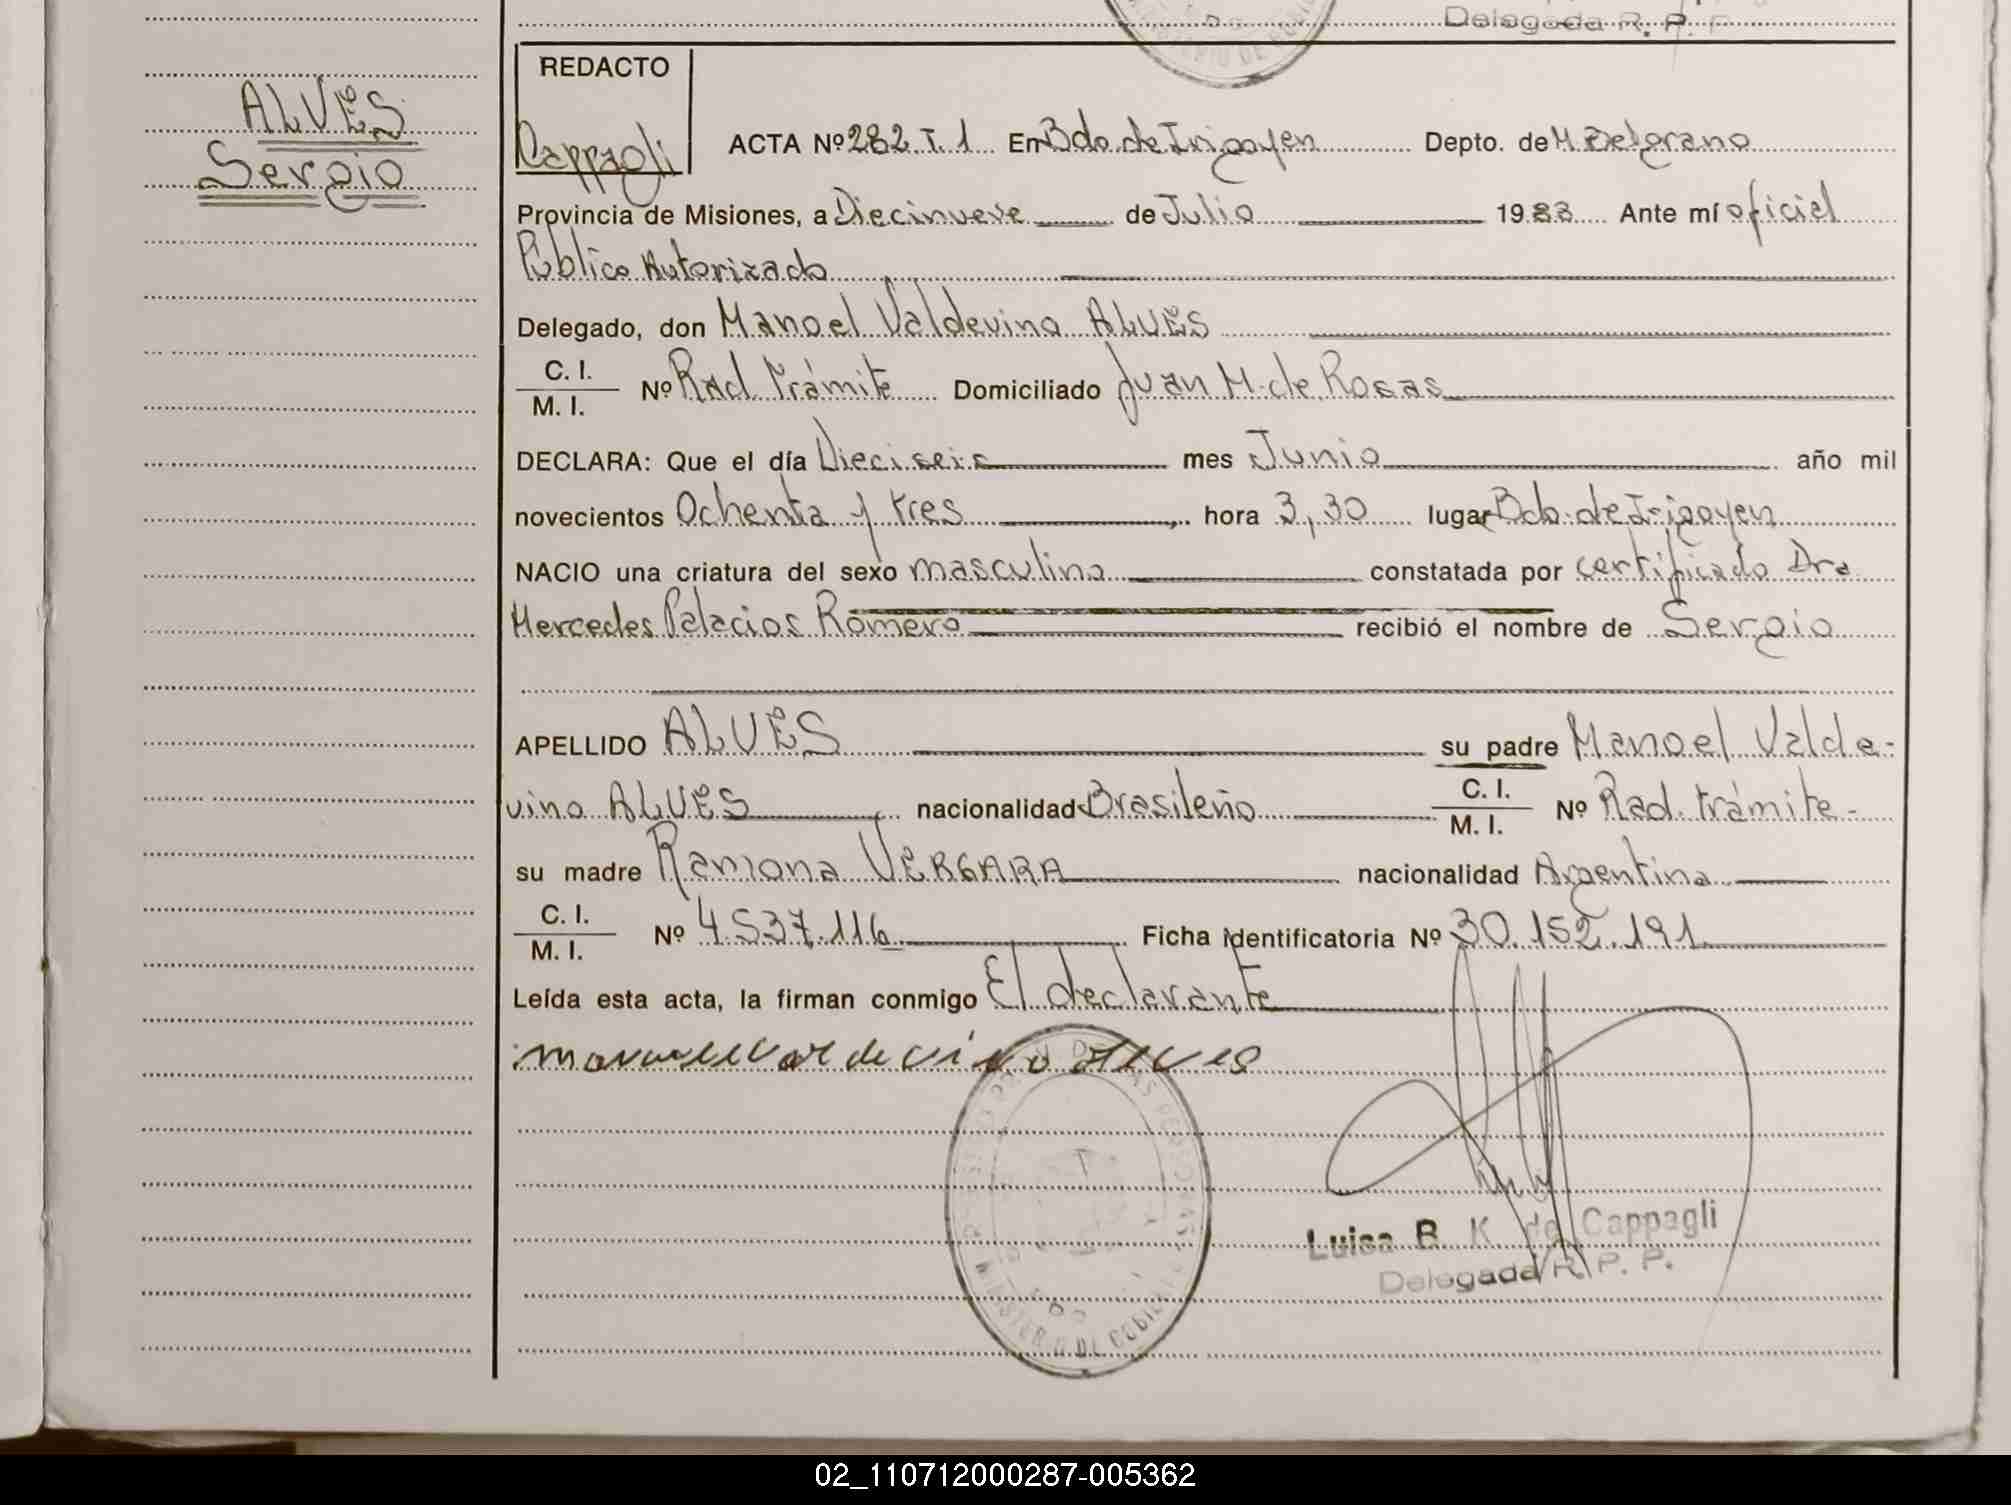 Delegada R. P. P
ALVES
Sergio
REDACTO
Cappagli
ACTA Nº 282 T. 1 En Bdo. de Irigoyen Depto. de M. Belgrano
Provincia de Misiones, a Diecinueve de Julio 1983 Ante mí oficial
Público Autorizado
Delegado, don Manoel Valdevino ALVES
C. I.
M. I.
Nº Rad. Trámite Domiciliado Juan M. de Rosas
DECLARA: Que el día Dieciseis mes Junio año mil
novecientos Ochenta y tres hora 3,30 lugar Bdo. de Irigoyen
NACIO una criatura del sexo masculino constatada por certificado Dra
Mercedes Palacios Romero recibió el nombre de Sergio
APELLIDO ALVES su padre Manoel Valde-
vino ALVES nacionalidad Brasileño C. I. M. I. Nº Rad. trámite-
su madre Ramona VERGARA nacionalidad Argentina
C. I.
M. I.
Nº 4.537.116 Ficha Identificatoria Nº 30.152.191
Leída esta acta, la firman conmigo El declarante
manuel valdevino alves
Luisa B. K. de Cappagli
Delegada R. P. P.
02_110712000287-005362